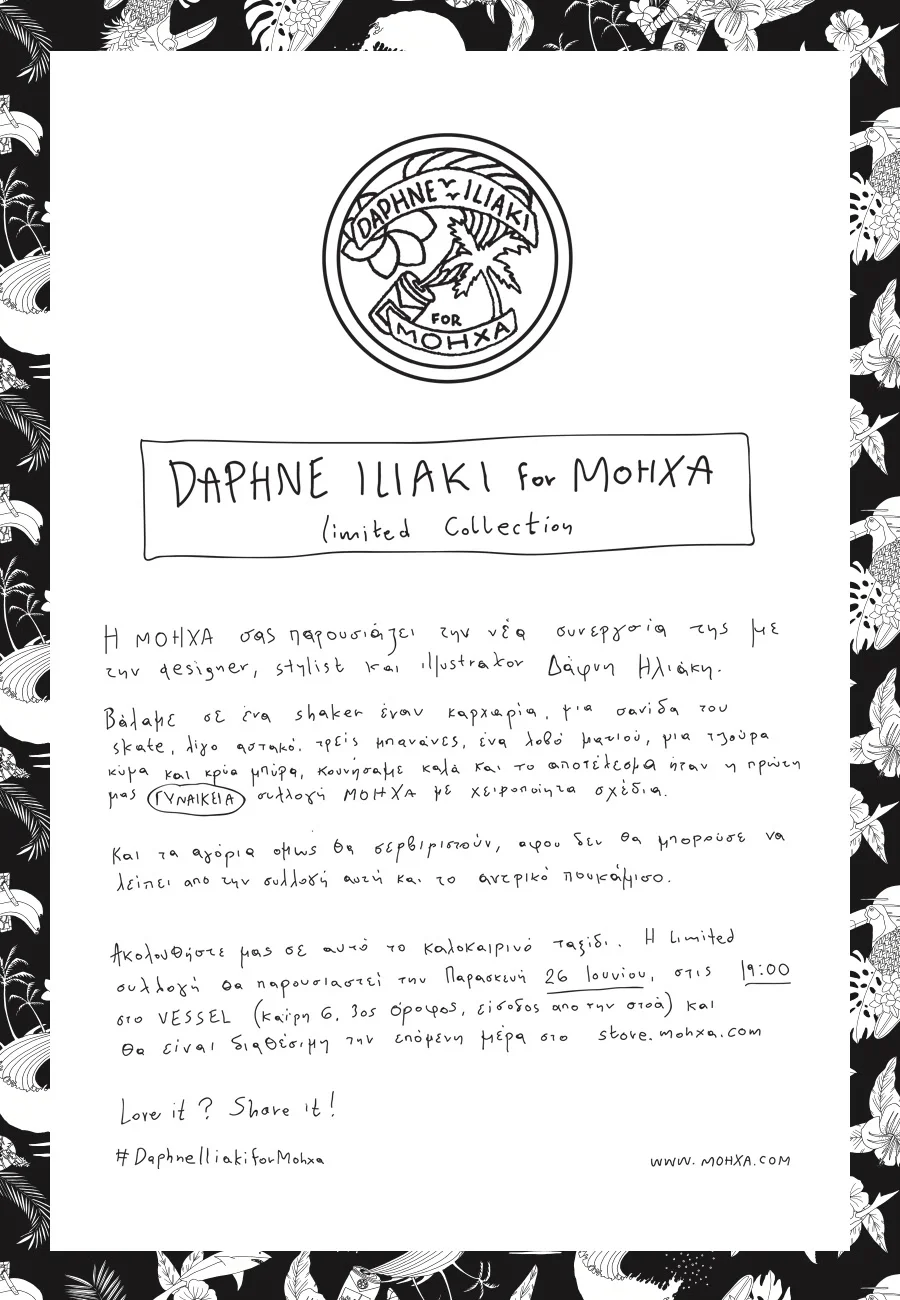 DAPHNE ILIAKI
FOR
MOHXA
DAPHNE ILIAKI for MOHXA
limited Collection
Η MOHXA σας παρουσιάζει την νέα συνεργασία της με
την designer, stylist και illustrator Δάφνη Ηλιάκη.
Βάλαμε σε ένα shaker έναν καρχαρία, μια σανίδα του
skate, λίγο αστακό, τρείς μπανάνες, ένα λοβό ματιού, μια τζούρα
κύμα και κρύα μπύρα, κουνήσαμε καλά και το αποτέλεσμα ήταν η πρώτη
μας ΓΥΝΑΙΚΕΙΑ συλλογή MOHXA με χειροποίητα σχέδια.
Και τα αγόρια όμως θα σερβιριστούν, αφου δεν θα μπορούσε να
λείπει από την συλλογή αυτή και το αντρικό πουκάμισο.
Ακολουθήστε μας σε αυτό το καλοκαιρινό ταξίδι. Η limited
συλλογή θα παρουσιαστεί την Παρασκευή 26 Ιουνίου, στις 19:00
στο VESSEL (Καΐρη 6, 3ος όροφος, είσοδος απο την στοά) και
θα είναι διαθέσιμη την επόμενη μέρα στο store.mohxa.com
Love it? Share it!
#DaphneIliakiforMohxa
www.MOHXA.COM